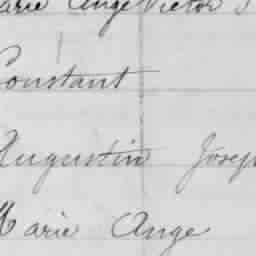 Marie Ange Victor
Constant
Augustin Joseph
Marie Ange